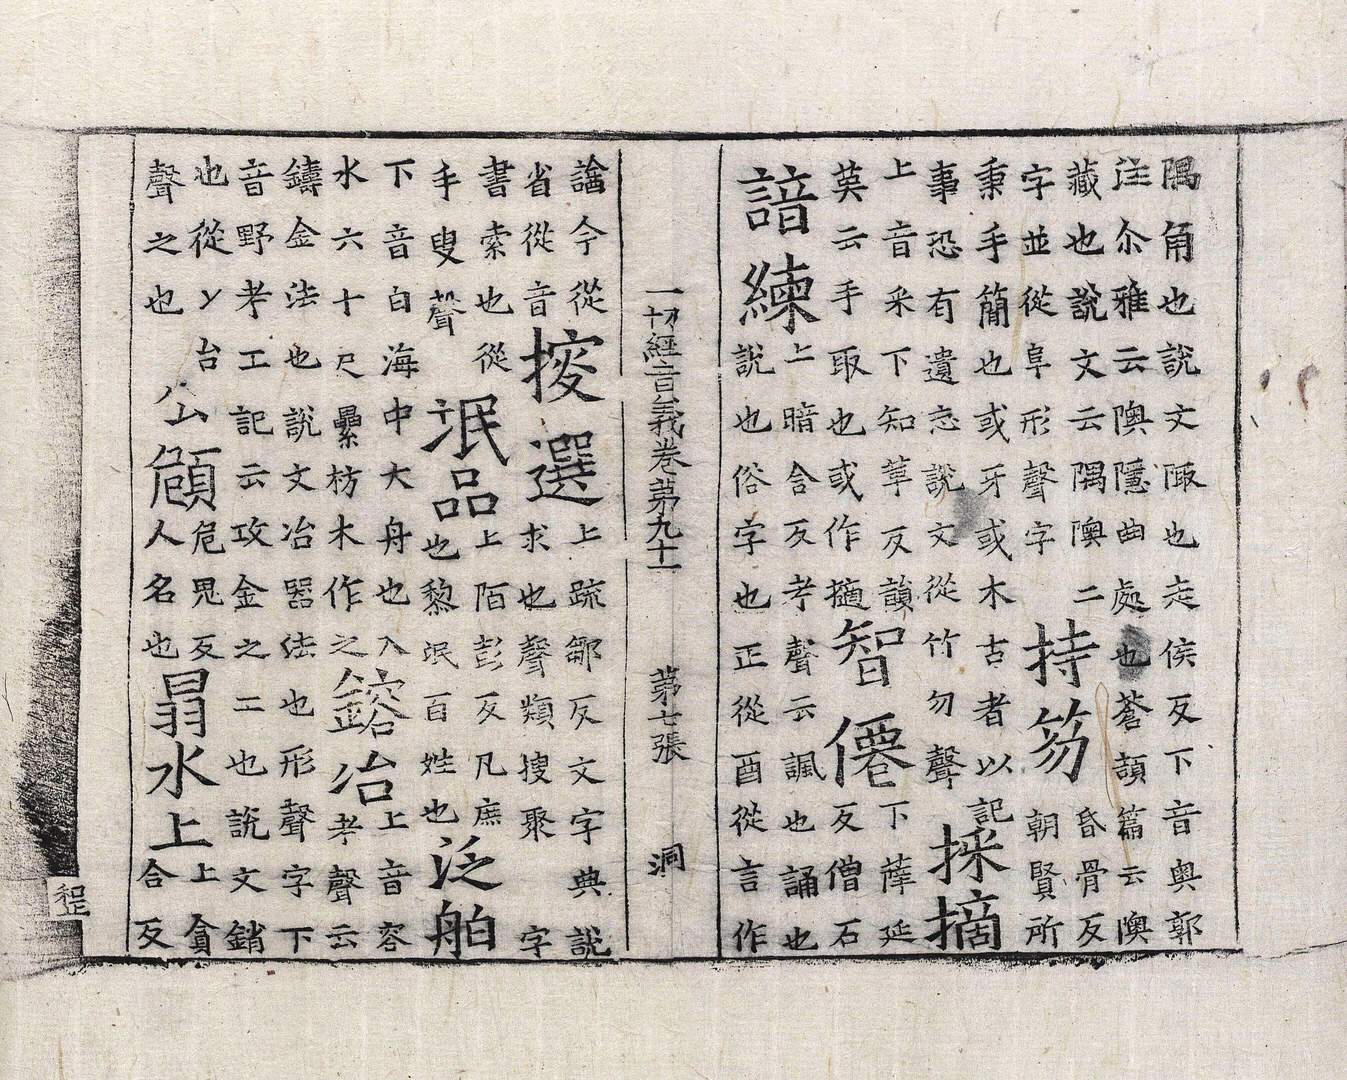 隅角也說文陬也走侯反下音奥郭
注尒雅云隩隱曲處也蒼頡篇云隩
藏也說文云隅隩二
字並從阜形聲字
持笏
昏骨反
朝賢所
秉手簡也或牙或木古者以記
事恐有遺忘說文從竹勿聲
採摘
上音采下知革反韻
英云手取也或作擿
智僊
下薩延
反僧名
諳練
上暗含反考聲云諷也誦也
說也俗字也正從酉從言作
一切經音義卷第九十一 第七張 洞
今從
省從音
搜選
上疏鄒反文字典說
求也聲類搜聚字
書索也從
手叟聲
泯品
上陌彭反凡庶
也黎泯百姓也
泛舶
下音白海中大舟也入
水六十尺纍枋木作之
鎔冶
上音容
考聲云
鑄金法也說文冶器法也形聲字下
音野考工記云攻金之二也說文銷
也從冫台
聲之也
公頠
危鬼反
人名也
𦐇水上
上貪
合反